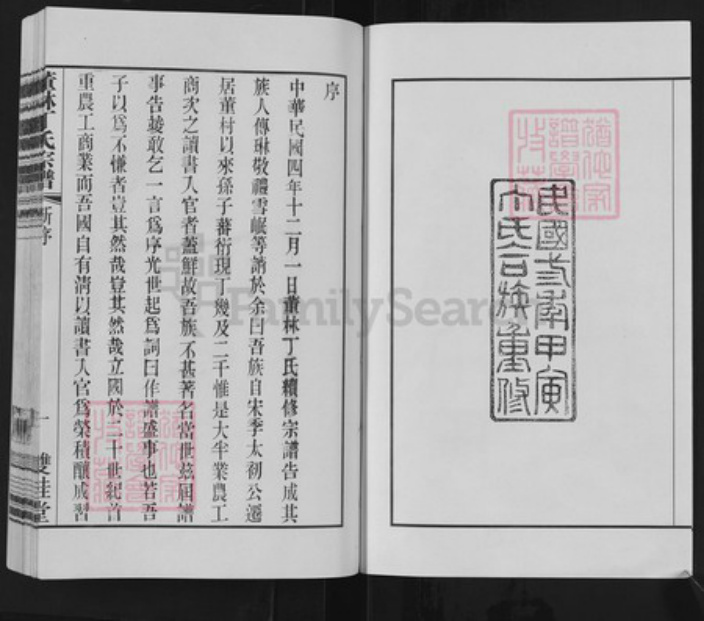 民國三年甲寅
丁氏合族重修
序
中華民國四年十二月一日董林丁氏續修宗譜告成其
族人傳琳敬禮雪岷等請於余曰吾族自宋季太初公遷
居董村以來孫子蕃衍現丁幾及二千惟是大半業農工
商次之讀書入官者蓋鮮故吾族不甚著名當世玆屆譜
事告竣敢乞一言爲序光世起爲詞曰作譜盛事也若吾
子以爲不慊者豈其然哉豈其然哉立國於二十世紀首
重農工商業而吾國自有清以讀書入官爲榮積釀成習
董林丁氏宗譜
新序
一
雙桂堂
FamilySearch